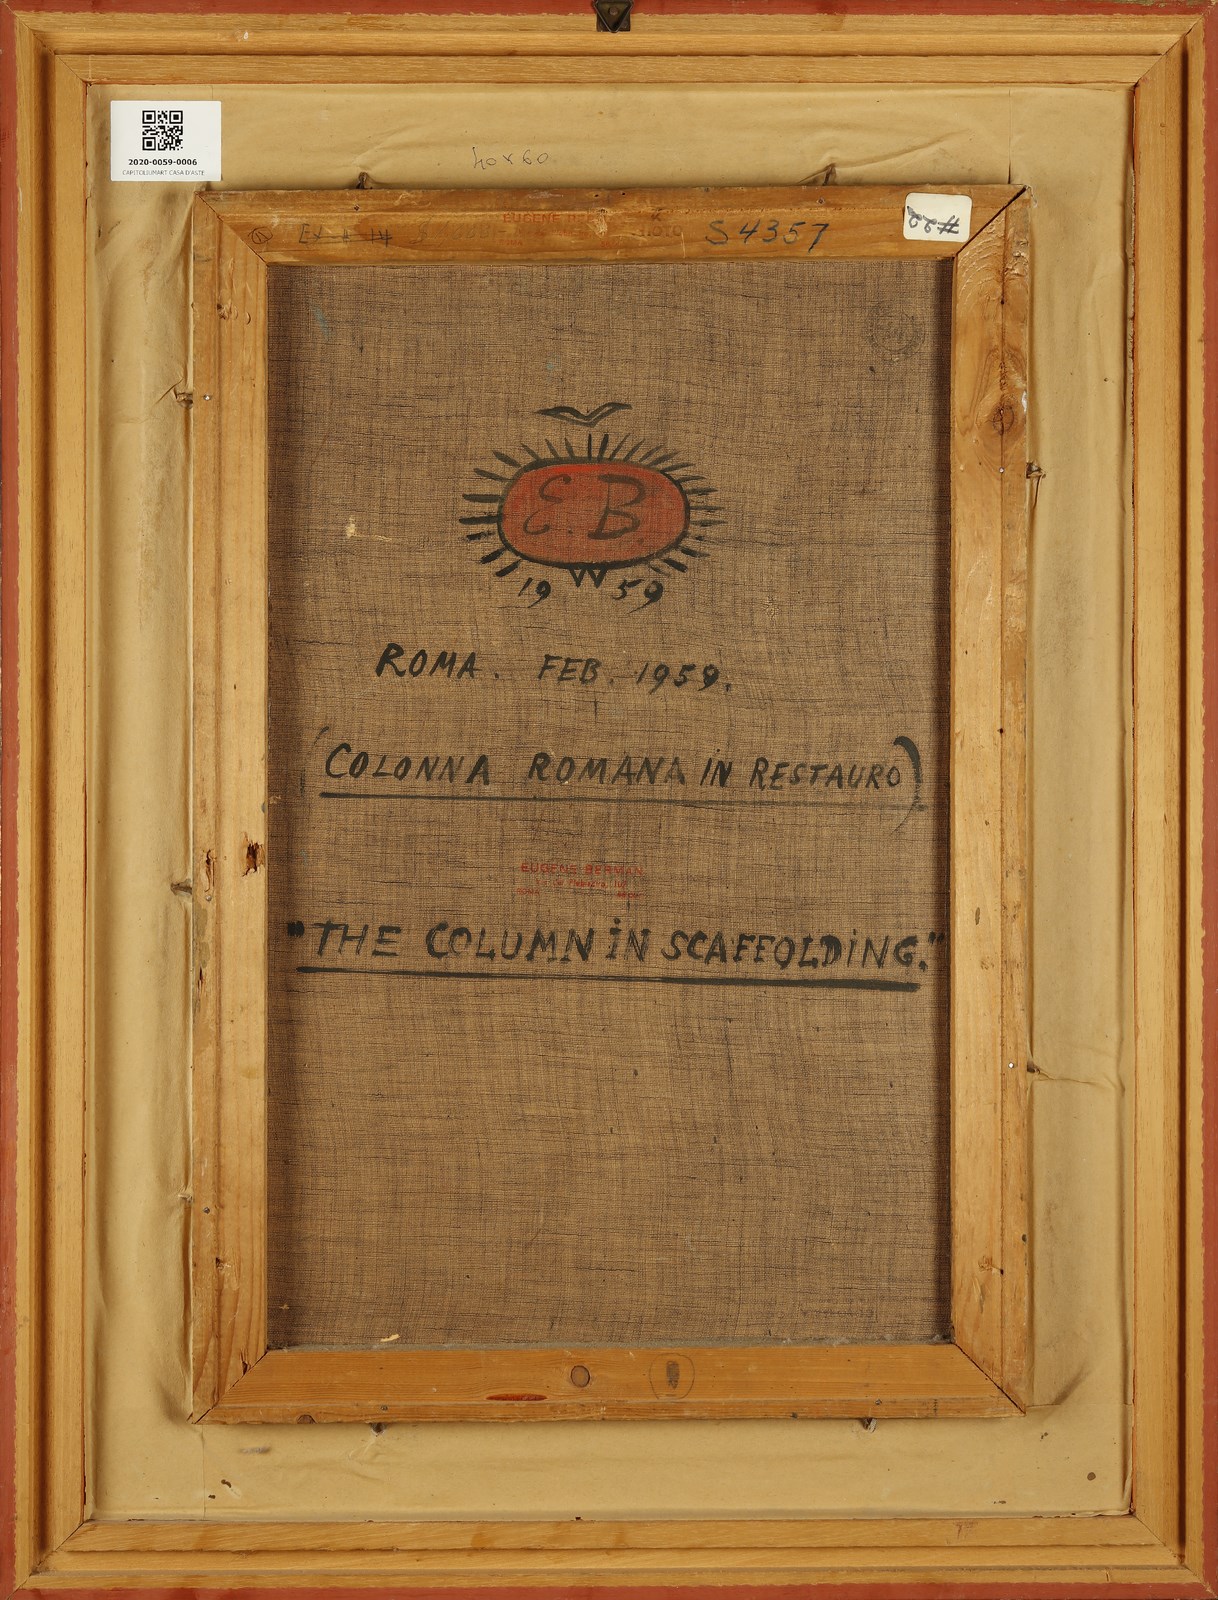 2020-0059-0006
CAPITOLIUMART CASA D'ASTE
40x60
S4357
#22
E.B.
1959
ROMA. FEB. 1959.
(COLONNA ROMANA IN RESTAURO)
EUGENE BERMAN
"THE COLUMN IN SCAFFOLDING."